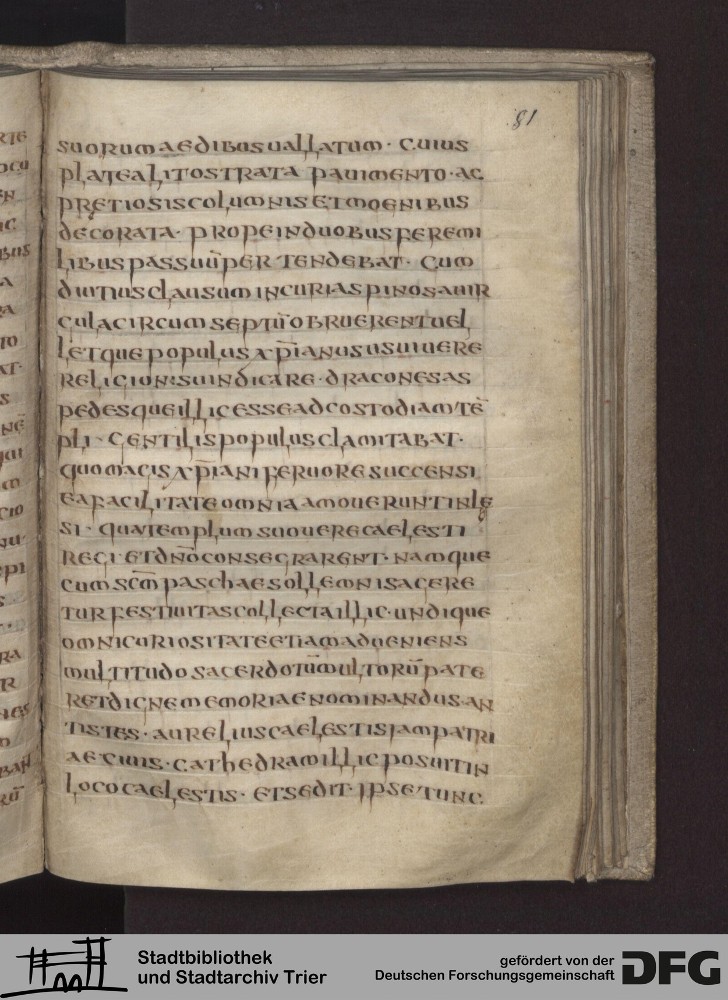 81
suorum aedibus uallatum · cuius
platea litostrata pauimento · ac
pretiosis columnis et moenibus
decorata · prope in duobus fere mi
libus passuū pertendebat · cum
diutius clausum incurias pinosa uir
gulta circum septū obruerent uel
letque populus xp̄ianus usui uere
religionis uindicare · dracones as
pedesque illic esse ad costodiam tē
pli · gentilis populus clamitabat ·
quo magis xp̄iani feruore succensi
ea facilitate omnia amouerunt inle
si · qua templum suo uere caelesti
regi · et dn̄o consegrarent · namque
cum sc̄m paschae sollemnis agere
tur festiuitas collecta illic · undique
omni curiositate etiam adueniens
multitudo sacerdotum multorū pate
ret digne memoriae nominandus · an
tistes · aurelius caelestis iam patri
ae ciuis · cathedram illic posuit in
loco caelestis · et sedit · ipse tunc
Stadtbibliothek
und Stadtarchiv Trier
gefördert von der
Deutschen Forschungsgemeinschaft
DFG